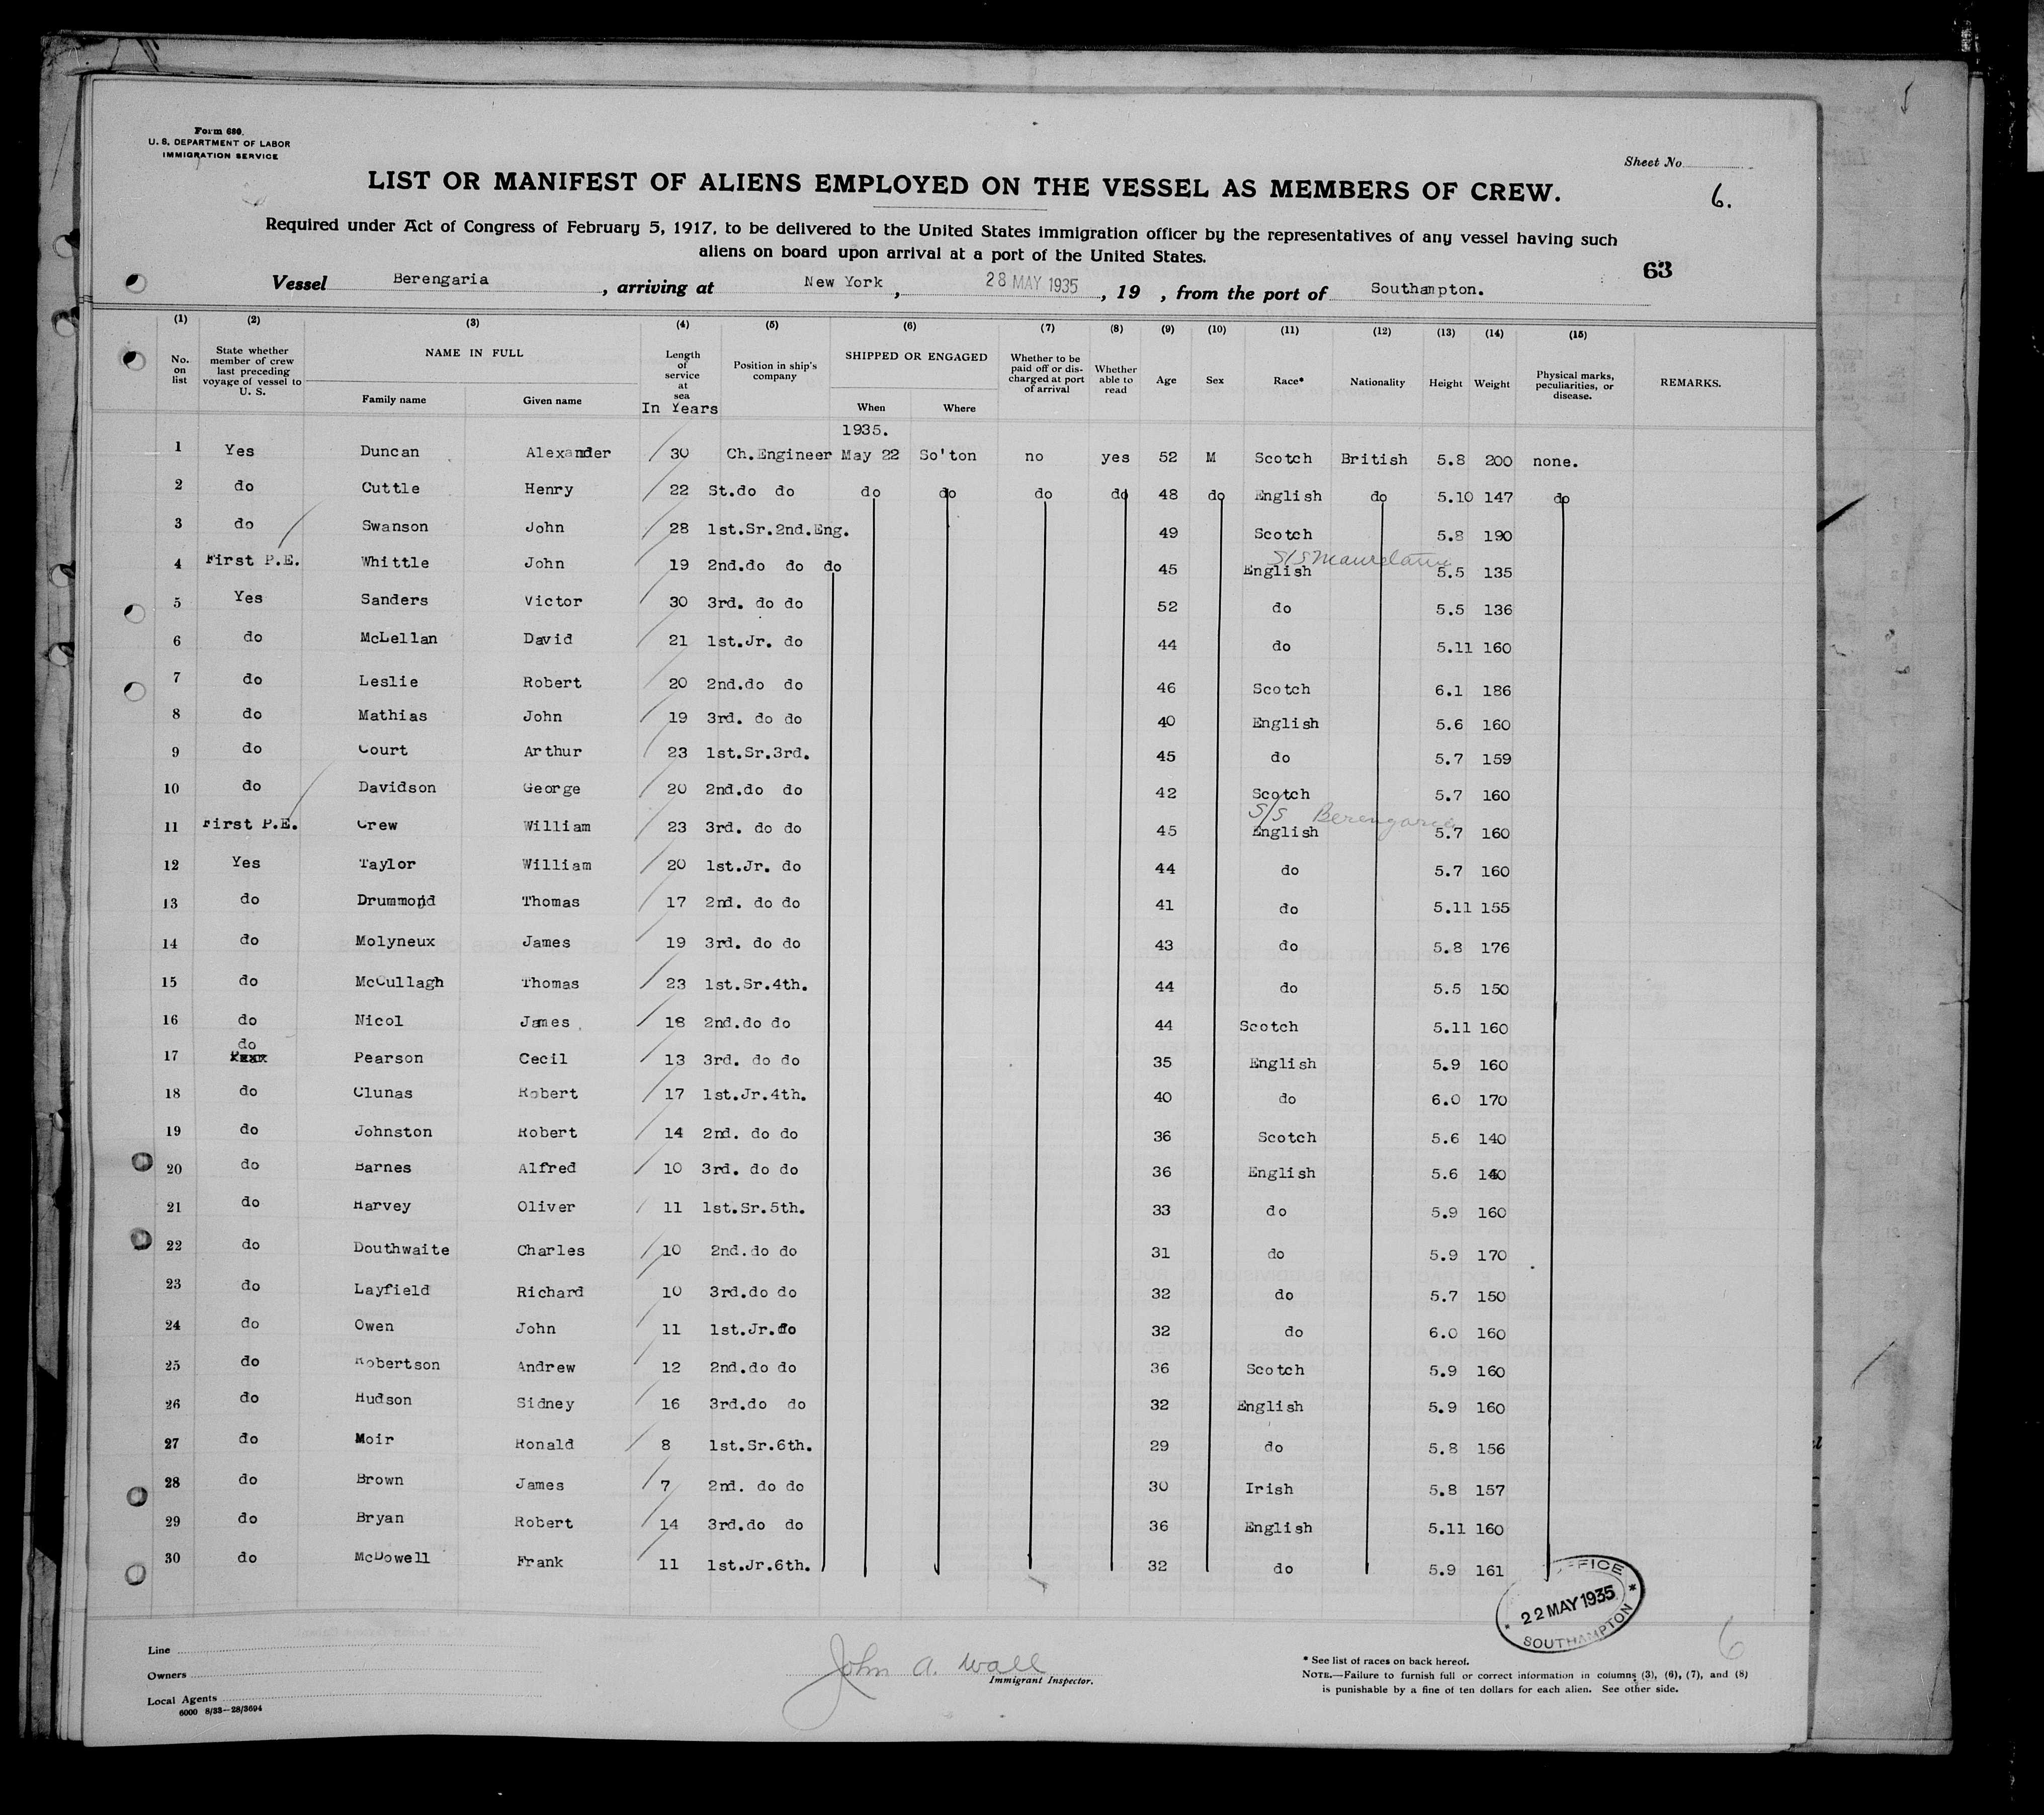 Form 680.
U. S. DEPARTMENT OF LABOR
IMMIGRATION SERVICE
Sheet No.
6.
LIST OR MANIFEST OF ALIENS EMPLOYED ON THE VESSEL AS MEMBERS OF CREW.
Required under Act of Congress of February 5, 1917, to be delivered to the United States immigration officer by the representatives of any vessel having such
aliens on board upon arrival at a port of the United States.
63
Vessel Berengaria , arriving at New York , 28 MAY 1935 , 19 , from the port of Southampton.
(1) (2) (3) (4) (5) (6) (7) (8) (9) (10) (11) (12) (13) (14) (15)
No. on list State whether member of crew last preceding voyage of vessel to U. S. NAME IN FULL Family name Given name Length of service at sea In Years Position in ship's company SHIPPED OR ENGAGED When Where Whether to be paid off or discharged at port of arrival Whether able to read Age Sex Race* Nationality Height Weight Physical marks, peculiarities, or disease. REMARKS.
1935.
1 Yes Duncan Alexander 30 Ch.Engineer May 22 So'ton no yes 52 M Scotch British 5.8 200 none.
2 do Cuttle Henry 22 St.do do do do do do 48 do English do 5.10 147 do
3 do Swanson John 28 1st.Sr.2nd.Eng. 49 Scotch 5.8 190
S/S Mauretania
4 First P.E. Whittle John 19 2nd.do do do 45 English 5.5 135
5 Yes Sanders Victor 30 3rd. do do 52 do 5.5 136
6 do McLellan David 21 1st.Jr. do 44 do 5.11 160
7 do Leslie Robert 20 2nd.do do 46 Scotch 6.1 186
8 do Mathias John 19 3rd. do do 40 English 5.6 160
9 do Court Arthur 23 1st.Sr.3rd. 45 do 5.7 159
10 do Davidson George 20 2nd.do do 42 Scotch 5.7 160
S/S Berengaria
11 First P.E. Crew William 23 3rd. do do 45 English 5.7 160
12 Yes Taylor William 20 1st.Jr. do 44 do 5.7 160
13 do Drummond Thomas 17 2nd. do do 41 do 5.11 155
14 do Molyneux James 19 3rd. do do 43 do 5.8 176
15 do McCullagh Thomas 23 1st.Sr.4th. 44 do 5.5 150
16 do Nicol James 18 2nd.do do 44 Scotch 5.11 160
17 do Pearson Cecil 13 3rd. do do 35 English 5.9 160
18 do Clunas Robert 17 1st.Jr.4th. 40 do 6.0 170
19 do Johnston Robert 14 2nd. do do 36 Scotch 5.6 140
20 do Barnes Alfred 10 3rd. do do 36 English 5.6
21 do Harvey Oliver 11 1st.Sr.5th. 33 do 5.9 160
22 do Douthwaite Charles 10 2nd.do do 31 do 5.9 170
23 do Layfield Richard 10 3rd.do do 32 do 5.7 150
24 do Owen John 11 1st.Jr.do 32 do 6.0 160
25 do Robertson Andrew 12 2nd.do do 36 Scotch 5.9 160
26 do Hudson Sidney 16 3rd.do do 32 English 5.9 160
27 do Moir Ronald 8 1st.Sr.6th. 29 do 5.8 156
28 do Brown James 7 2nd. do do 30 Irish 5.8 157
29 do Bryan Robert 14 3rd.do do 36 English 5.11 160
30 do McDowell Frank 11 1st.Jr.6th. 32 do 5.9 161
OFFICE
22 MAY 1935
SOUTHAMPTON
6
Line
Owners
Local Agents
6000 8/33—28/3694
John A. Wall
Immigrant Inspector.
* See list of races on back hereof.
NOTE.—Failure to furnish full or correct information in columns (3), (6), (7), and (8)
is punishable by a fine of ten dollars for each alien. See other side.